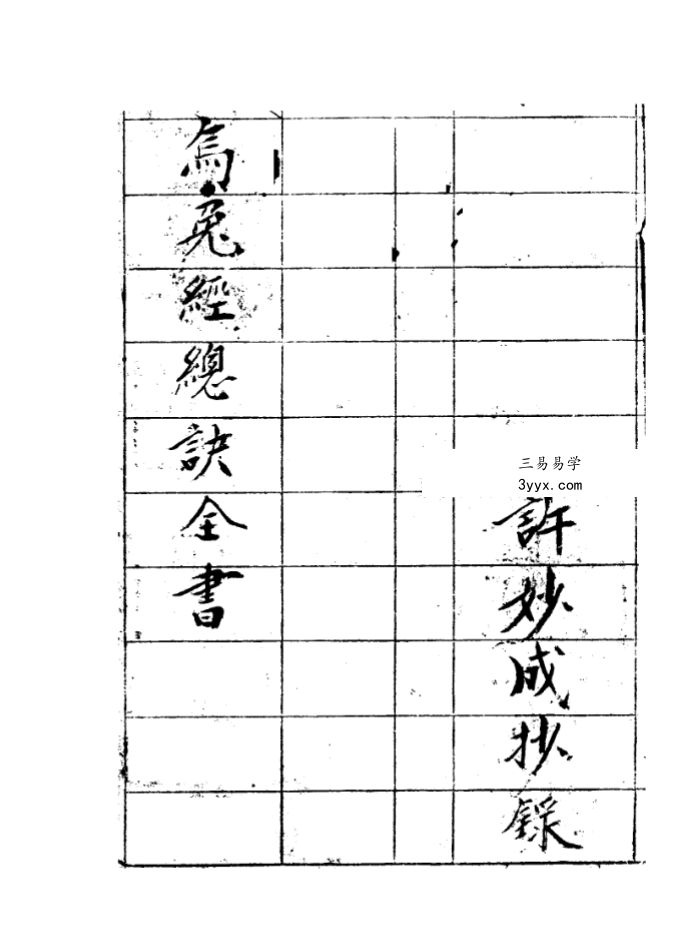 許妙成抄錄
烏兔經總訣全書
三易易学
3yyx.com